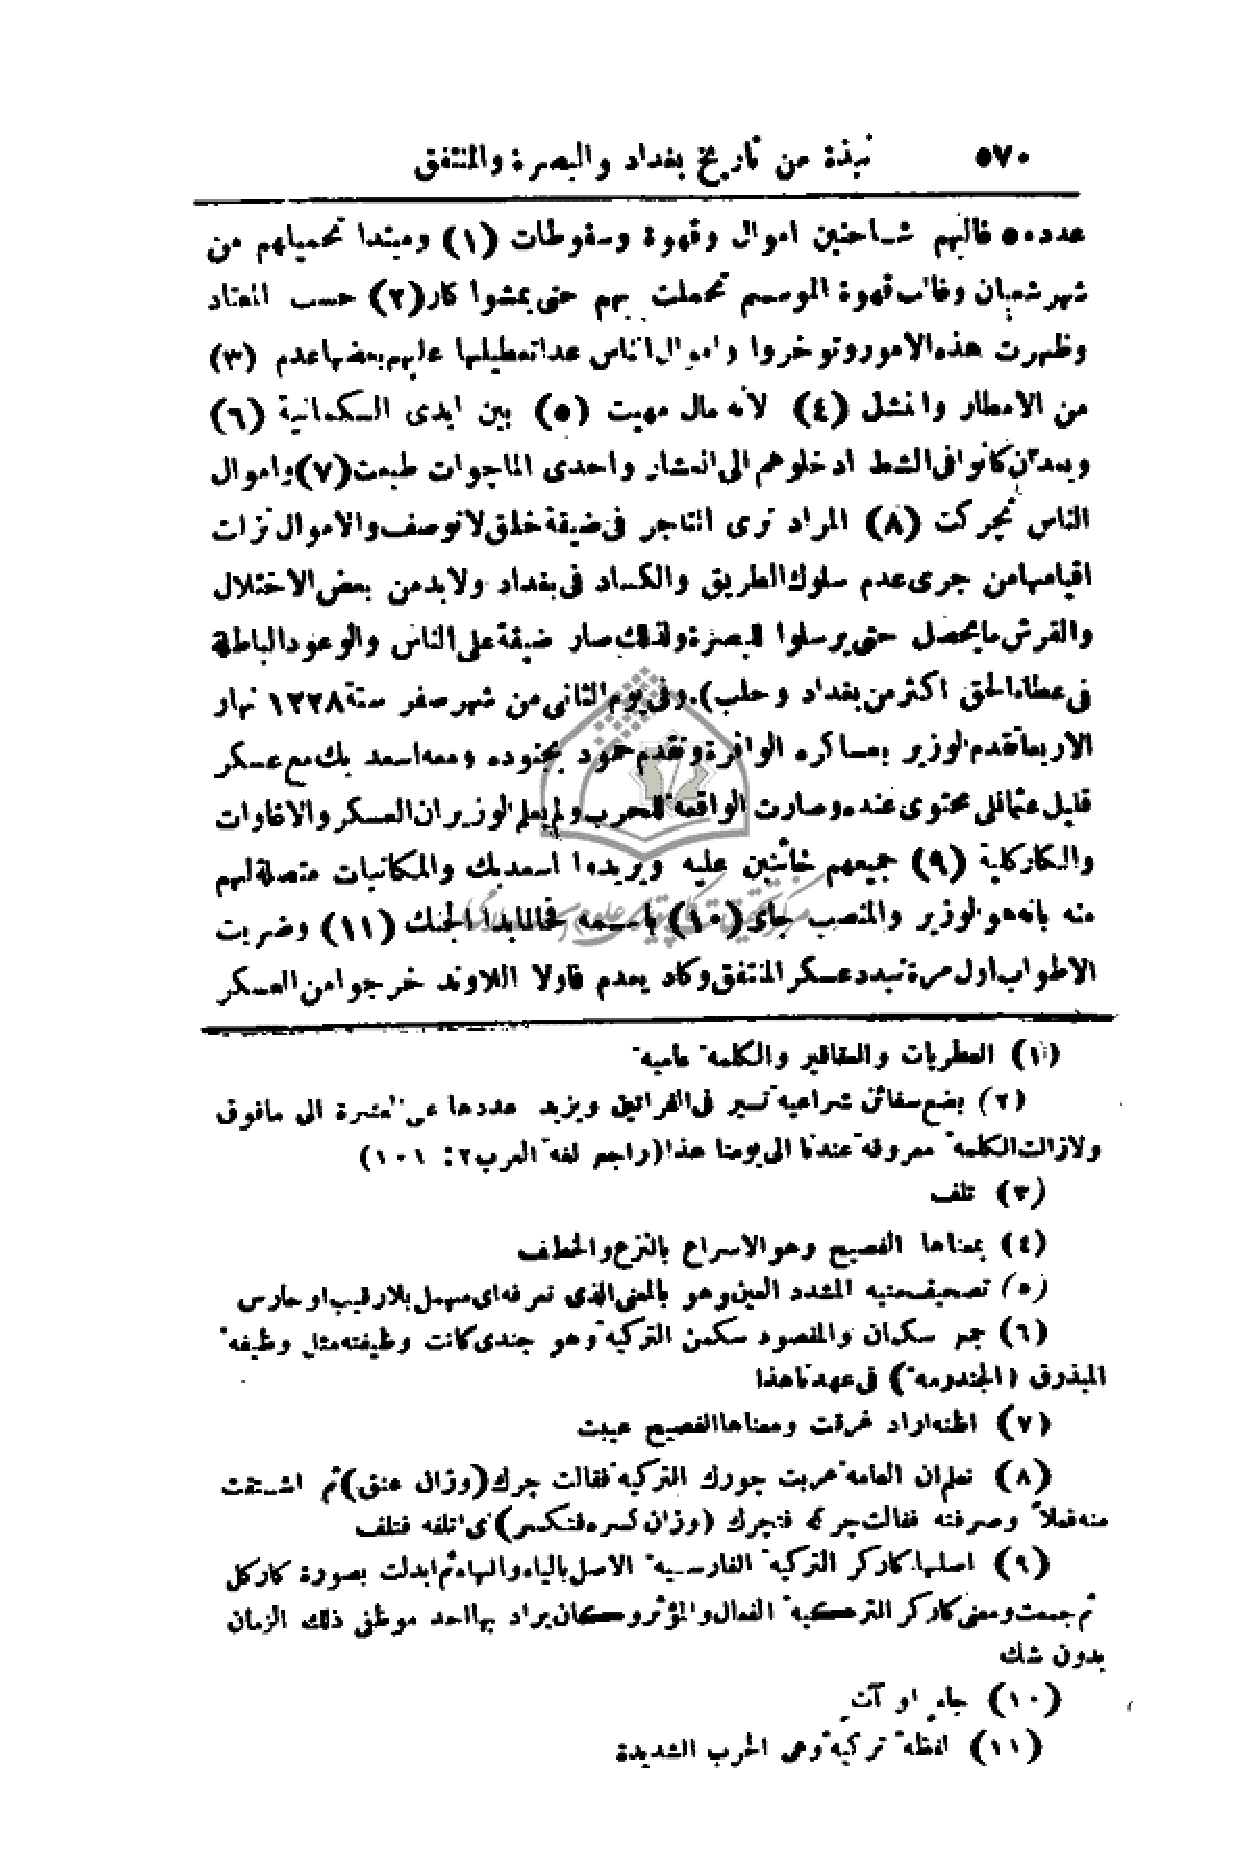 ٥٧٠ نبذة من تاريخ بغداد والبصرة والمنتفق
عدد ٥٠ غالبهم شاحنين اموال وقهوة وسقوطات (١) ومبتدا تحميلهم من
شهر شعبان وغالب قهوة الموسم تحملت بهم حتى يمشوا كار (٢) حسب المعتاد
وظهرت هذه الامور وتوخروا واموال الناس عدا تعطيلها عليهم بعضها عدم (٣)
من الامطار والنشل (٤) لأنه مال مهيت (٥) بين ايدى السكمانية (٦)
وبعد ان كانوا فى الشط ادخلوهم الى العشار واحدى الماجوات طبعت (٧) واموال
الناس تجركت (٨) المراد ترى التاجر فى ضيقة خلق لا توصف والاموال نزلت
اقيامها من جرى عدم سلوك الطريق والكساد فى بغداد ولابد من بعض الاختلال
والقرش ما يحصل حتى يرسلوا للبصرة ولذلك صار ضيقة على الناس والوعود الباطلة
فى عطاء الحق اكثر من بغداد وحلب). وفى يوم الثانى من شهر صفر سنة ١٢٢٨ نهار
الاربعا تقدم الوزير بعساكره الوافرة وتقدم حمود بجنوده ومعه اسعد بك مع عسكر
قليل عثمانلى محتوى عنده وصارت الواقعة للحرب ولم يعلم الوزير ان العسكر والاغاوات
والكاركلية (٩) جميعهم خائنين عليه ويريدوا اسعد بك والمكاتبات متصلة لهم
منه بانه هو الوزير والمنصب جاى (١٠) باسمه فحالما بدا الجنك (١١) وضربت
الاطواب اول مرة تبدد عسكر المنتفق وكاد يعدم فاولا اللاوند خرجوا من العسكر
(١) العطريات والعقاقير والكلمة عامية
(٢) بضع سفائن شراعية تسير فى الفراتين ويزيد عددها عن العشرة الى مافوق
ولازالت الكلمة معروفة عندنا الى يومنا هذا (راجع لغة العرب ٢: ١٠١)
(٣) تلف
(٤) بمعناها الفصيح وهو الاسراع بالنزع والخطف
(٥) تصحيف مهيه المشدد العين وهو بالمعنى الذى نعرفه اى مهمل بلا رقيب او حارس
(٦) جمع سكمان والمقصود سكمن التركية وهو جندى كانت وظيفته مثل وظيفة
المبذرق (الجندرمه) فى عهدنا هذا
(٧) اظنه اراد غرقت ومعناها الفصيح عيبت
(٨) نعلم ان العامة عربت جورك التركية فقالت جرك (وزان عنق) ثم اشتقت
منه فعلاً وصرفته فقالت جركه فتجرك (وزان كسره فتكسر) اى اتلفه فتلف
(٩) اصلها كاركر التركية الفارسية الاصل بالياء والهاء ثم ابدلت بصورة كاركل
ثم جمعت ومعنى كاركر التركية الفعال والمؤثر وكان يراد بها احد موظفى ذلك الزمان
بدون شك
(١٠) جاء او آت
(١١) لفظة تركية وهى الحرب الشديدة